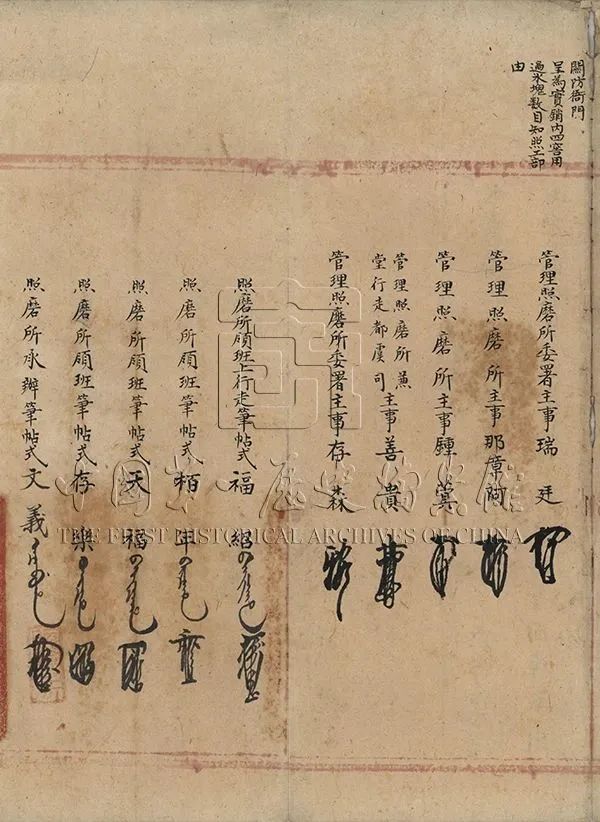 關防衙門
呈為實銷內四窖用
過氷塊數目知照工部
由
管理照磨所委署主事瑞廷
管理照磨所主事那章阿
管理照磨所主事鍾濱
管理照磨所兼
堂行走都虞司
主事善貴
管理照磨所委署主事存森
照磨所頋班上行走筆帖式福紹
照磨所頋班筆帖式栢年
照磨所頋班筆帖式天福
照磨所頋班筆帖式存樂
照磨所承辦筆帖式文義
中國第一歷史檔案館
THE FIRST HISTORICAL ARCHIVES OF CHINA